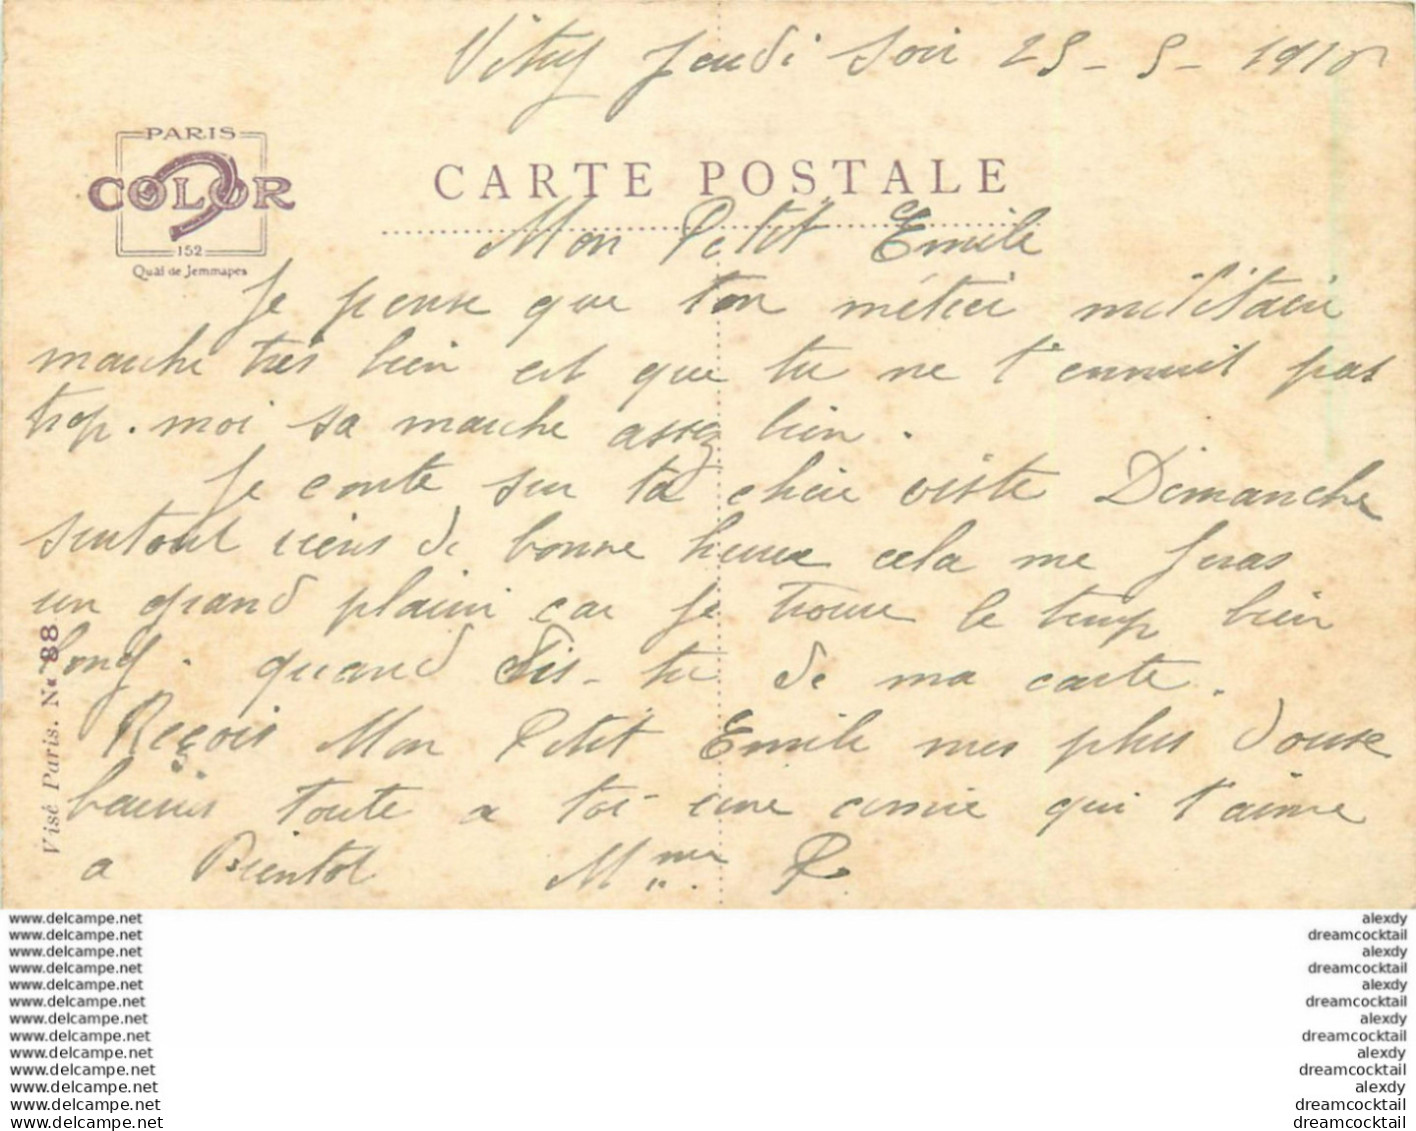 Vitry Jeudi soir 25-5-1916
PARIS
COLOR
152
Quai de Jemmapes
CARTE POSTALE
Mon Petit Emile
Je pense que ton métier militaire
marche très bien est que tu ne t'ennuit pas
trop. moi sa marche assez bien.
Je conte sur ta chère viste Dimanche
surtout viens de bonne heure cela me feras
un grand plaisir car je trouve le temp bien
long. quand dis-tu de ma carte.
Reçois Mon Petit Emile mes plus douse
baisers toute a toi une amie qui t'aime
a Bientot Mme R
Visé Paris. No 88
www.delcampe.net alexdy
www.delcampe.net dreamcocktail
www.delcampe.net alexdy
www.delcampe.net dreamcocktail
www.delcampe.net alexdy
www.delcampe.net dreamcocktail
www.delcampe.net alexdy
www.delcampe.net dreamcocktail
www.delcampe.net alexdy
www.delcampe.net dreamcocktail
www.delcampe.net alexdy
www.delcampe.net dreamcocktail
www.delcampe.net dreamcocktail